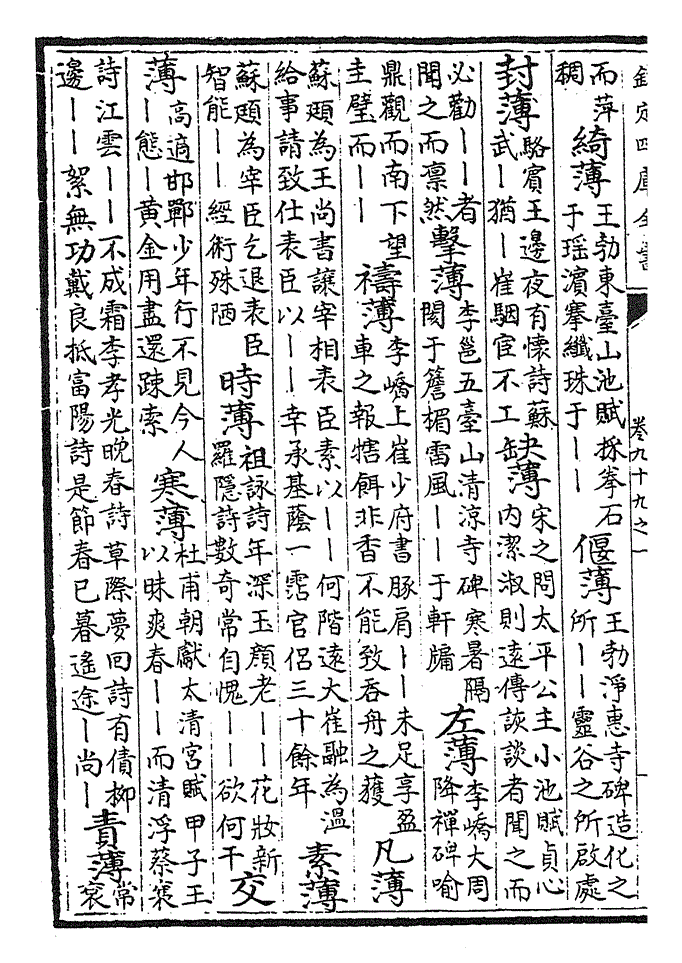 欽定四庫全書
卷九十九之一
而萍
稠
綺薄
王勃東臺山池賦採拳石
于瑶濱搴纖珠于——
偃薄
王勃淨惠寺碑造化之
所——靈谷之所啟處
封薄
駱賓王邊夜有懷詩蘇
武—猶—崔駰宦不工
缺薄
宋之問太平公主小池賦貞心
内潔淑則遠傳詼談者聞之而
必勸——者
聞之而凛然
擊薄
李邕五臺山清涼寺碑寒暑隔
閡于簷楣雷風——于軒牖
左薄
李嶠大周
降禪碑喻
鼎觀而南下望
圭璧而——
禱薄
李嶠上崔少府書豚肩——未足享盈
車之報犗餌非香不能致吞舟之獲
凡薄
蘇頲為王尚書讓宰相表臣素以——何階遠大崔融為温
給事請致仕表臣以——幸承基蔭一霑官侣三十餘年
素薄
蘇頲為宰臣乞退表臣
智能——經術殊陋
時薄
祖詠詩年深玉顏老——花妝新
羅隱詩數奇常自愧——欲何干
交
薄
高適邯鄲少年行不見今人
—態—黄金用盡還踈索
寒薄
杜甫朝獻太清宮賦甲子王
以昧爽春——而清浮蔡襄
詩江雲——不成霜李孝光晚春詩草際夢回詩有債柳
邊——絮無功戴良抵富陽詩是節春已暮遙途—尚—
責薄
常
衮